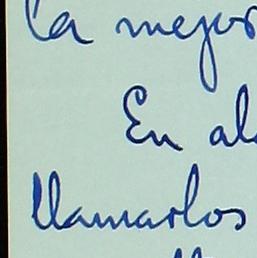 la mejor
En al
llamarlos